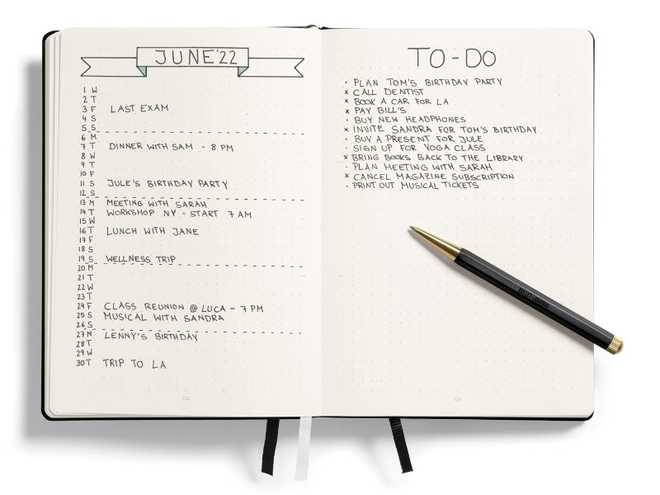 JUNE '22
1 W
2 T
3 F LAST EXAM
4 S
5 S
6 M
7 T DINNER WITH SAM - 8 PM
8 W
9 T
10 F
11 S JULE'S BIRTHDAY PARTY
12 S
13 M MEETING WITH SARAH
14 T WORKSHOP NY - START 7 AM
15 W
16 T LUNCH WITH JANE
17 F
18 S
19 S WELLNESS TRIP
20 M
21 T
22 W
23 T
24 F CLASS REUNION @ LUCA - 7 PM
25 S MUSICAL WITH SANDRA
26 S
27 M LENNY'S BIRTHDAY
28 T
29 W
30 T TRIP TO LA
TO-DO
· PLAN TOM'S BIRTHDAY PARTY
x CALL DENTIST
x BOOK A CAR FOR LA
x PAY BILL'S
· BUY NEW HEADPHONES
x INVITE SANDRA FOR TOM'S BIRTHDAY
· BUY A PRESENT FOR JULE
· SIGN UP FOR YOGA CLASS
x BRING BOOKS BACK TO THE LIBRARY
· PLAN MEETING WITH SARAH
x CANCEL MAGAZINE SUBSCRIPTION
· PRINT OUT MUSICAL TICKETS